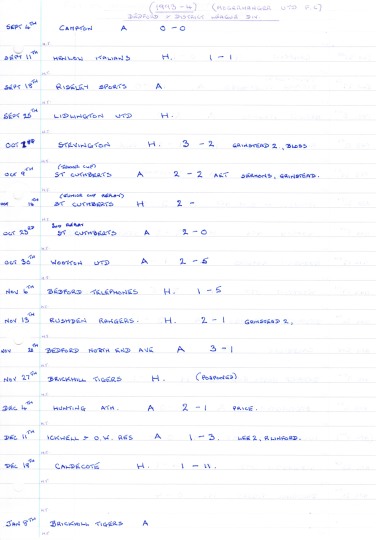 (1993-4) (MOGERHANGER UTD F.C)
BEDFORD & DISTRICT LEAGUE DIV.
SEPT 4TH CAMPTON A 0-0
SEPT 11TH HENLOW ITALIANS H. 1-1
SEPT 18TH RISELEY SPORTS A
SEPT 25TH LIDLINGTON UTD H.
OCT STEVINGTON H. 3-2 GRINSTEAD 2, BLOSS
(JUNIOR CUP)
OCT 9TH ST CUTHBERTS A 2-2 AET SERMONS, GRINSTEAD.
(JUNIOR CUP REPLAY)
16TH ST CUTHBERTS H 2-
2ND REPLAY
OCT 23RD ST CUTHBERTS A 2-0
OCT 30TH WOOTTON UTD A 2-5
NOV 6TH BEDFORD TELEPHONES H. 1-5
NOV 13TH RUSHDEN RANGERS. H. 2-1 GRINSTEAD 2,
NOV 20TH BEDFORD NORTH END AVE A 3-1
NOV 27TH BRICKHILL TIGERS H. (POSTPONED)
DEC 4TH HUNTING ATH. A 2-1 PRICE.
DEC 11TH ICKWELL & O.W. RES A 1-3. LEE 2, R LINFORD.
DEC 18TH CALDECOTE H. 1-11.
JAN 8TH BRICKHILL TIGERS A